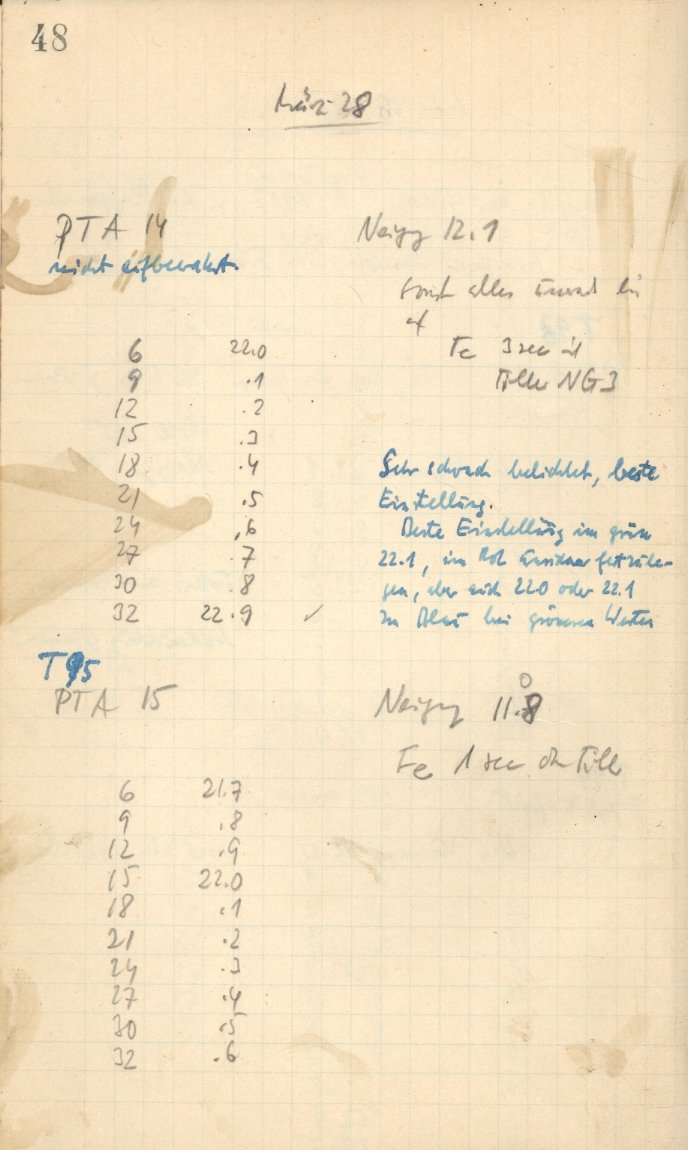 48
März 28
PTA 14
nicht aufbewahrt.
Neigg 12.1
sonst alles
Fe 3 sec
Filter NG3
6 22.0
9 .1
12 .2
15 .3
18 .4
21 .5
24 .6
27 .7
30 .8
32 22.9 ✓
Sehr schwach belichtet, beste
Einstellung.
Beste Einstellung im grün
22.1, im Rot
aber auch 22.0 oder 22.1
Im Blau bei grösseren Werten
T 95
PTA 15
Neigg 11.8
0
Fe 1 sec ohn Filter
6 21.7
9 .8
12 .9
15 22.0
18 .1
21 .2
24 .3
27 .4
30 .5
32 .6